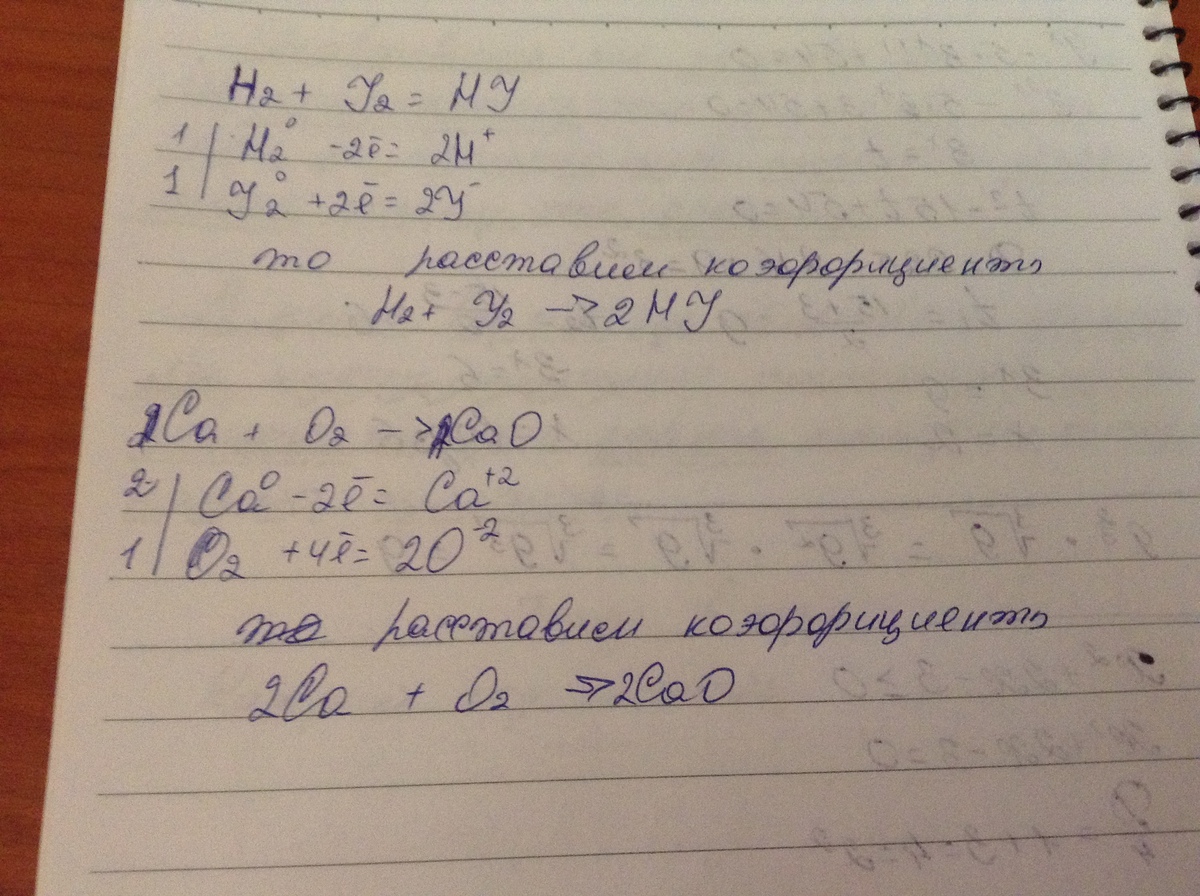 H₂ + J₂ = HJ
1 | H₂⁰ -2ē = 2H⁺
1 | J₂⁰ +2ē = 2J⁻
то расставием коэффициенты
H₂ + J₂ → 2HJ
2Ca + O₂ → 2CaO
2 | Ca⁰ -2ē = Ca⁺²
1 | O₂ +4ē = 2O⁻²
расставием коэффициенты
2Ca + O₂ → 2CaO